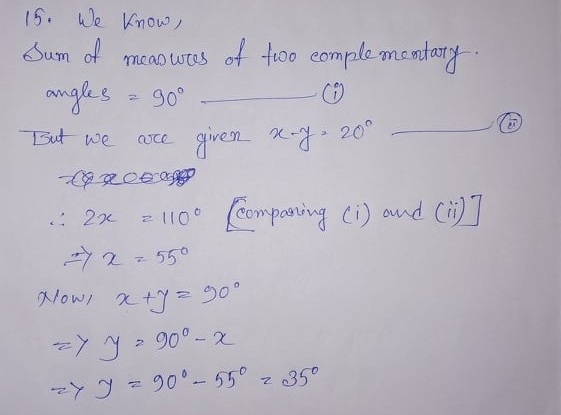 15. We know,
Sum of measures of two complementary.
angles = 90° ——— (i)
But we are given x-y = 20° ——— (ii)
∴ 2x = 110° [Comparing (i) and (ii)]
=> x = 55°
Now, x+y = 90°
=> y = 90° - x
=> y = 90° - 55° = 35°